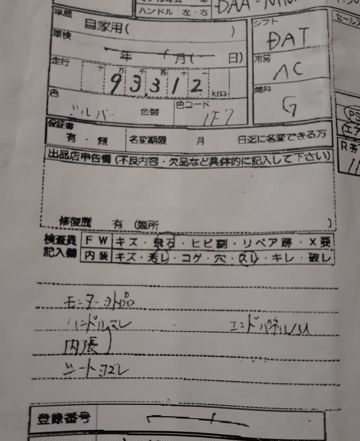 車歴
ハンドル 左・右
DAA-
自家用( )
シフト
DAT
車検
年 月( 日)
冷房
AC
走行
93312 km
燃料
G
色
シルバー
色替
色コード
1F7
保証書
有・無
名変期限 月 日迄に名変できる方
出品店申告欄(不良内容・欠品など具体的に記入して下さい)
修復歴 有(箇所 )
検査員記入欄
FW キズ・飛石・ヒビ割・リペア跡・X要
内装 キズ・汚レ・コゲ・穴・久レ・キレ・破レ
モニター欠品
ハンドルスレ
エンドパネルU
内張
シートヨゴレ
登録番号